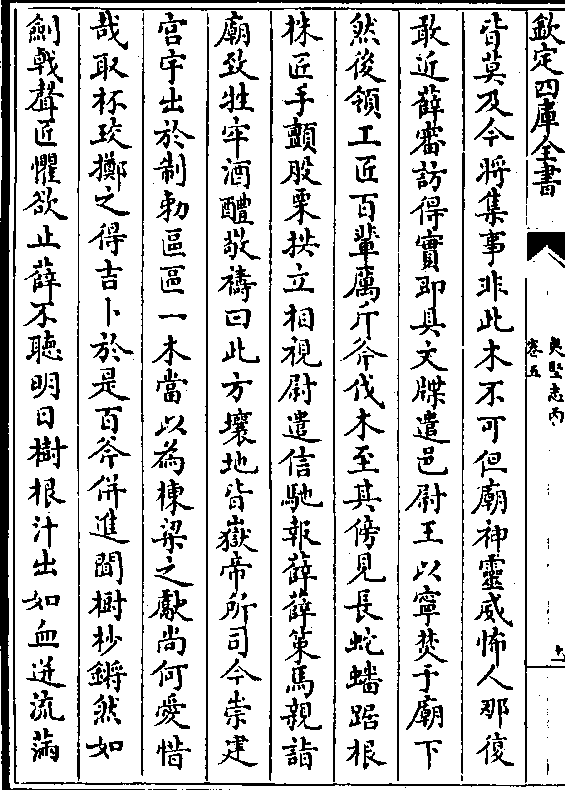 欽定四庫全書
夷堅志丙
卷五
皆莫及今將集事非此木不可但廟神靈威怖人那復
敢近薛審訪得實即具文牒遣邑尉王以寧焚于廟下
然後領工匠百輩厲斤斧伐木至其傍見長蛇蟠踞根
株匠手顫股栗拱立相視尉遣信馳報薛薛策馬親詣
廟致牲牢酒醴敬禱曰此方壤地皆嶽帝所司今崇建
宫宇出於制勅區區一木當以為棟梁之獻尚何愛惜
哉取杯珓擲之得吉卜於是百斧併進聞樹杪鏘然如
劍㦸聲匠懼欲止薛不聽明日樹根汁出如血迸流滿